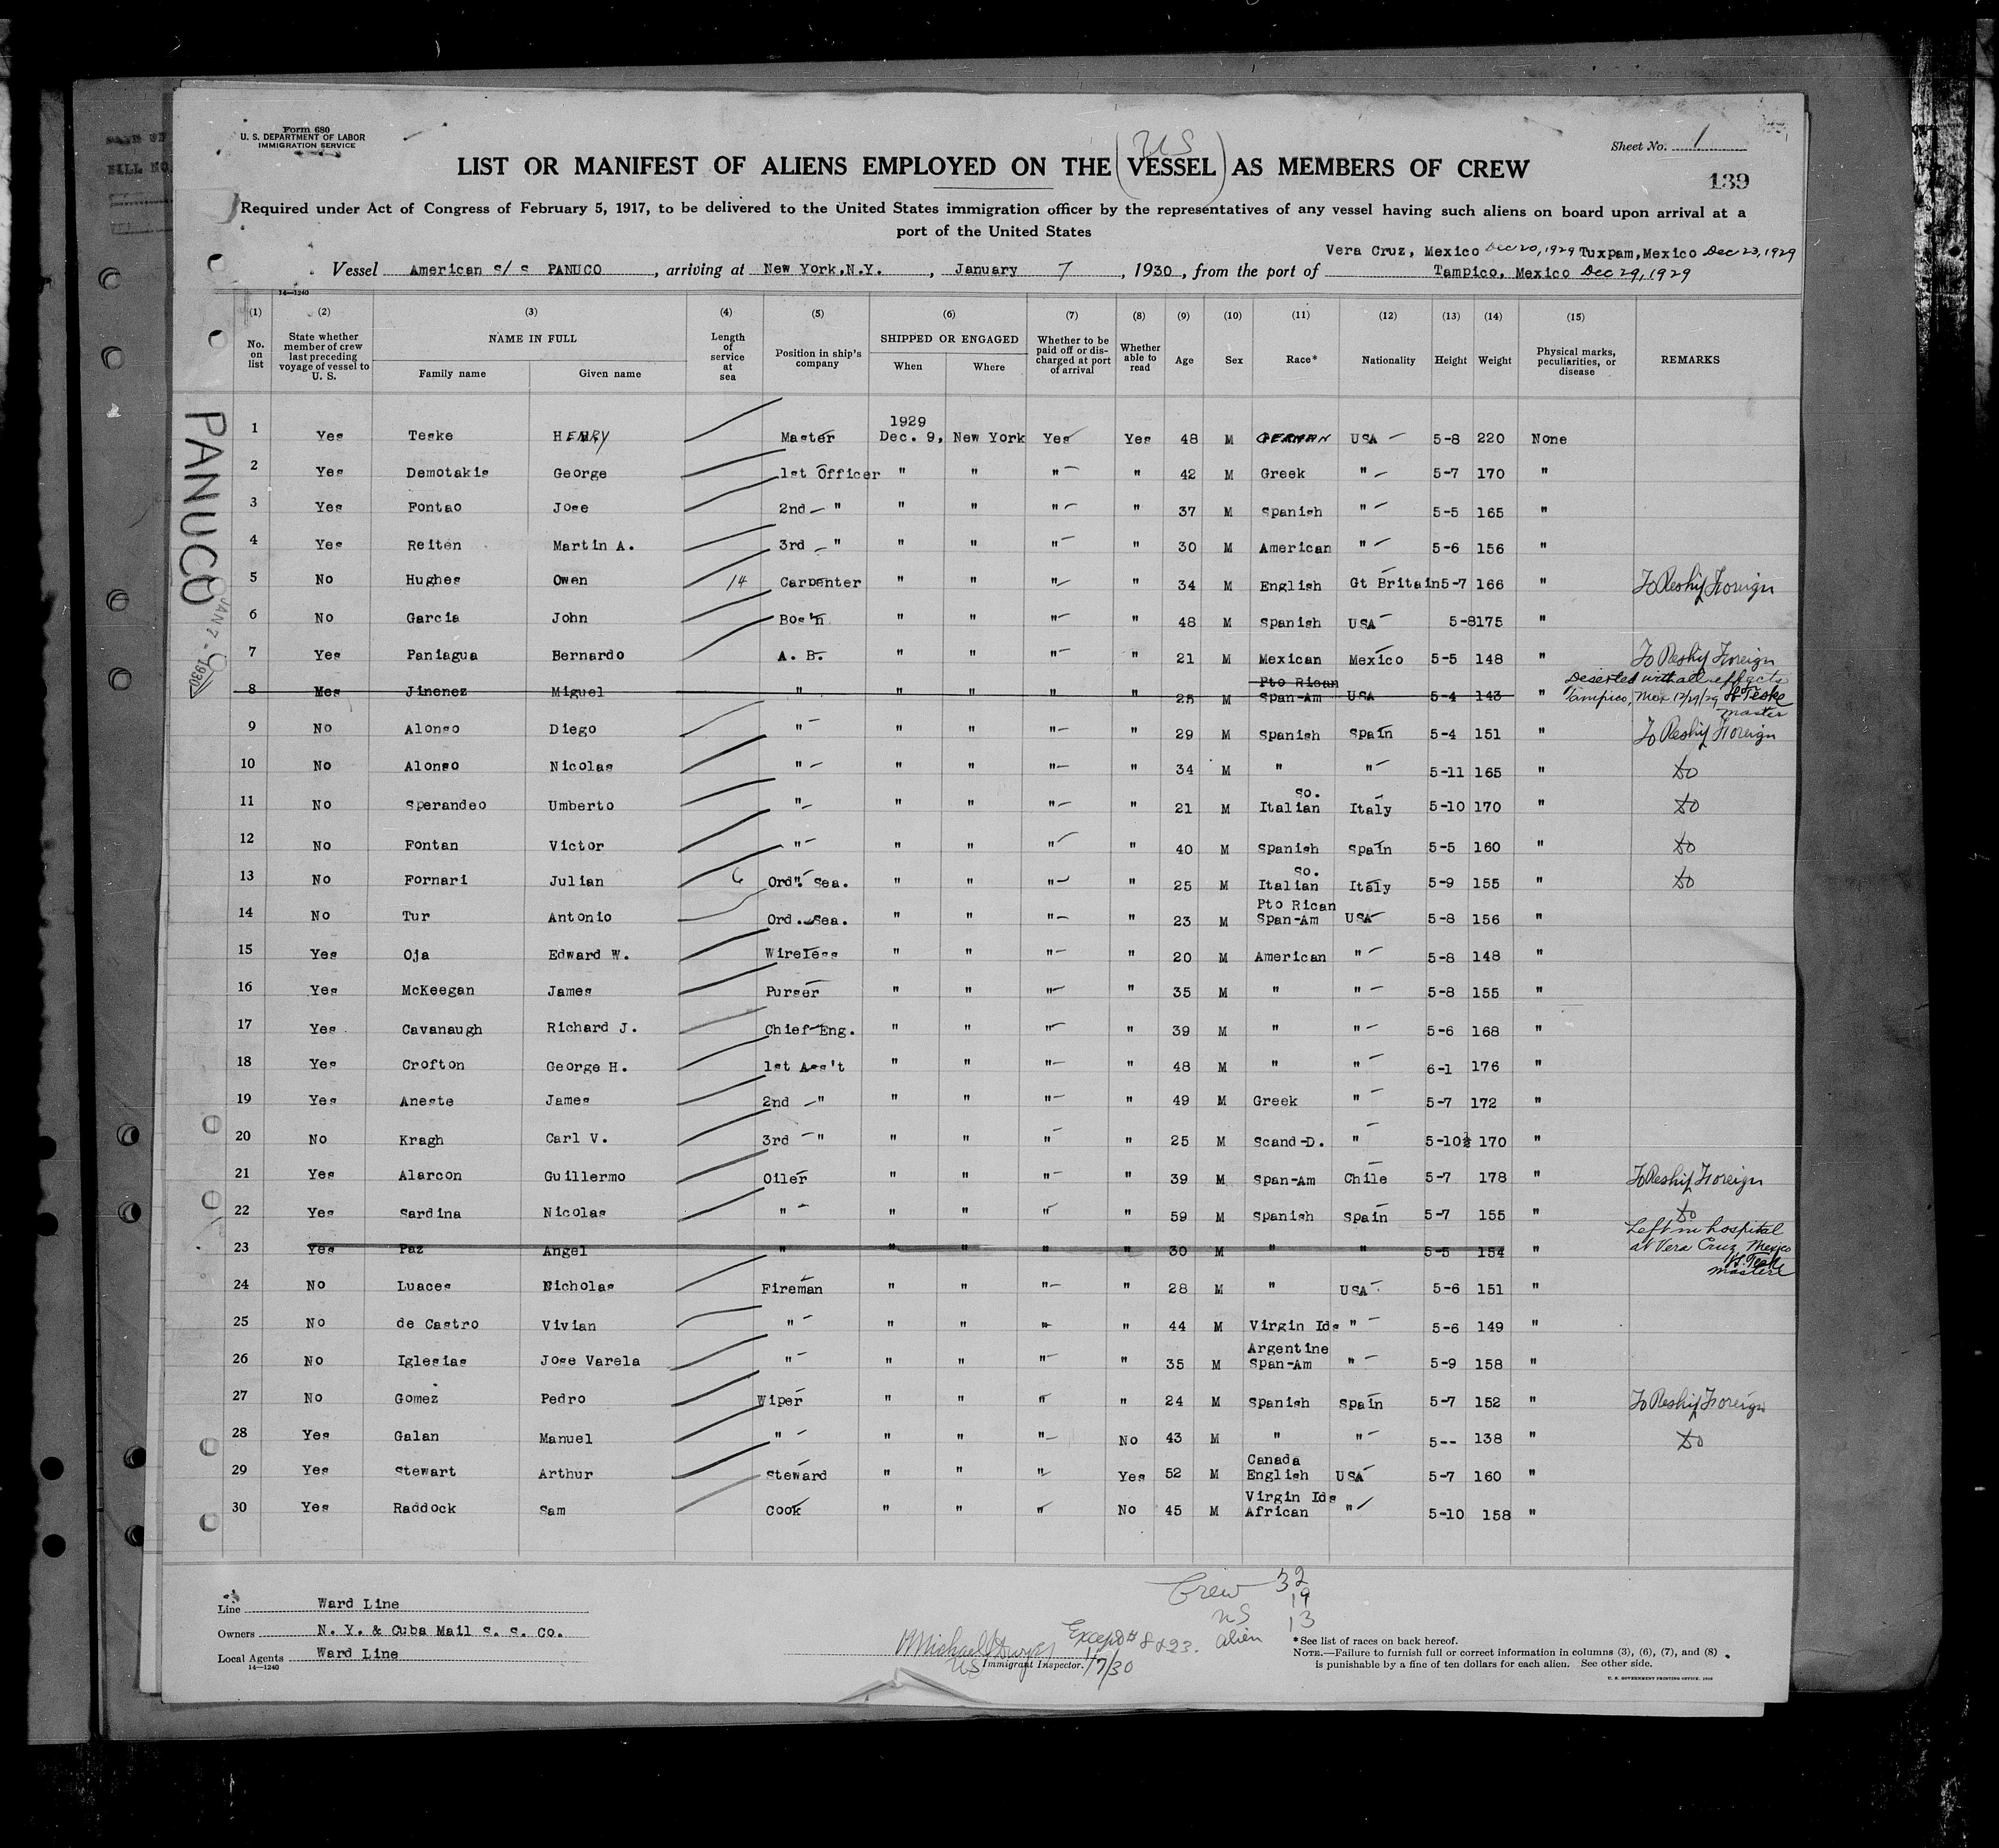 Form 680
U. S. DEPARTMENT OF LABOR
IMMIGRATION SERVICE
Sheet No. 1
US
LIST OR MANIFEST OF ALIENS EMPLOYED ON THE (VESSEL) AS MEMBERS OF CREW
139
Required under Act of Congress of February 5, 1917, to be delivered to the United States immigration officer by the representatives of any vessel having such aliens on board upon arrival at a
port of the United States
Vera Cruz, Mexico Dec 20, 1929 Tuxpam, Mexico Dec 23, 1929
Vessel American s/s PANUCO, arriving at New York, N.Y., January 7, 1930, from the port of Tampico, Mexico Dec 29, 1929
14—1240
(1) No. on list (2) State whether member of crew last preceding voyage of vessel to U. S. (3) NAME IN FULL Family name Given name (4) Length of service at sea (5) Position in ship's company (6) SHIPPED OR ENGAGED When Where (7) Whether to be paid off or discharged at port of arrival (8) Whether able to read (9) Age (10) Sex (11) Race* (12) Nationality (13) Height (14) Weight (15) Physical marks, peculiarities, or disease REMARKS
PANUCO
JAN 7 - 1930
1 Yes Teske HENRY Master 1929 Dec. 9, New York Yes Yes 48 M GERMAN USA 5-8 220 None
2 Yes Demotakis George 1st Officer " " " " 42 M Greek " 5-7 170 "
3 Yes Fontao Jose 2nd " " " " " 37 M Spanish " 5-5 165 "
4 Yes Reiten Martin A. 3rd " " " " " 30 M American " 5-6 156 "
5 No Hughes Owen 14 Carpenter " " " " 34 M English Gt Britain 5-7 166 " To Reship Foreign
6 No Garcia John Bos'n " " " " 48 M Spanish USA 5-8 175 "
7 Yes Paniagua Bernardo A. B. " " " " 21 M Mexican Mexico 5-5 148 " To Reship Foreign
8 Yes Jinenez Miguel " " " " " 25 M Pto Rican Span-Am USA 5-4 143 " Deserted with all effects Tampico, Mex 12/29/29 H. Teske master
9 No Alonso Diego " " " " " 29 M Spanish Spain 5-4 151 " To Reship Foreign
10 No Alonso Nicolas " " " " " 34 M " " 5-11 165 " do
11 No Sperandeo Umberto " " " " " 21 M So. Italian Italy 5-10 170 " do
12 No Fontan Victor " " " " " 40 M Spanish Spain 5-5 160 " do
13 No Fornari Julian 6 Ord". Sea. " " " " 25 M So. Italian Italy 5-9 155 " do
14 No Tur Antonio Ord. Sea. " " " " 23 M Pto Rican Span-Am USA 5-8 156 "
15 Yes Oja Edward W. Wireless " " " " 20 M American " 5-8 148 "
16 Yes McKeegan James Purser " " " " 35 M " " 5-8 155 "
17 Yes Cavanaugh Richard J. Chief Eng. " " " " 39 M " " 5-6 168 "
18 Yes Crofton George H. 1st Ass't " " " " 48 M " " 6-1 176 "
19 Yes Aneste James 2nd " " " " " 49 M Greek " 5-7 172 "
20 No Kragh Carl V. 3rd " " " " " 25 M Scand-D. " 5-10½ 170 "
21 Yes Alarcon Guillermo Oiler " " " " 39 M Span-Am Chile 5-7 178 " To Reship Foreign
22 Yes Sardina Nicolas " " " " " 59 M Spanish Spain 5-7 155 " do
23 Yes Paz Angel " " " " " 30 M " " 5-5 154 " Left in hospital at Vera Cruz, Mexico H. Teske master
24 No Luaces Nicholas Fireman " " " " 28 M " USA 5-6 151 "
25 No de Castro Vivian " " " " " 44 M Virgin Ids " 5-6 149 "
26 No Iglesias Jose Varela " " " " " 35 M Argentine Span-Am " 5-9 158 "
27 No Gomez Pedro Wiper " " " " 24 M Spanish Spain 5-7 152 " To Reship Foreign
28 Yes Galan Manuel " " " " No 43 M " " 5-- 138 " do
29 Yes Stewart Arthur Steward " " " Yes 52 M Canada English USA 5-7 160 "
30 Yes Raddock Sam Cook " " " No 45 M Virgin Ids African " 5-10 158 "
Crew 32
US 19
alien 13
Line Ward Line
Owners N. Y. & Cuba Mail S. S. Co.
Local Agents Ward Line
14—1240
Except # 8 & 23.
US Immigrant Inspector. 1/7/30
*See list of races on back hereof.
NOTE.—Failure to furnish full or correct information in columns (3), (6), (7), and (8)
is punishable by a fine of ten dollars for each alien. See other side.
U. S. GOVERNMENT PRINTING OFFICE